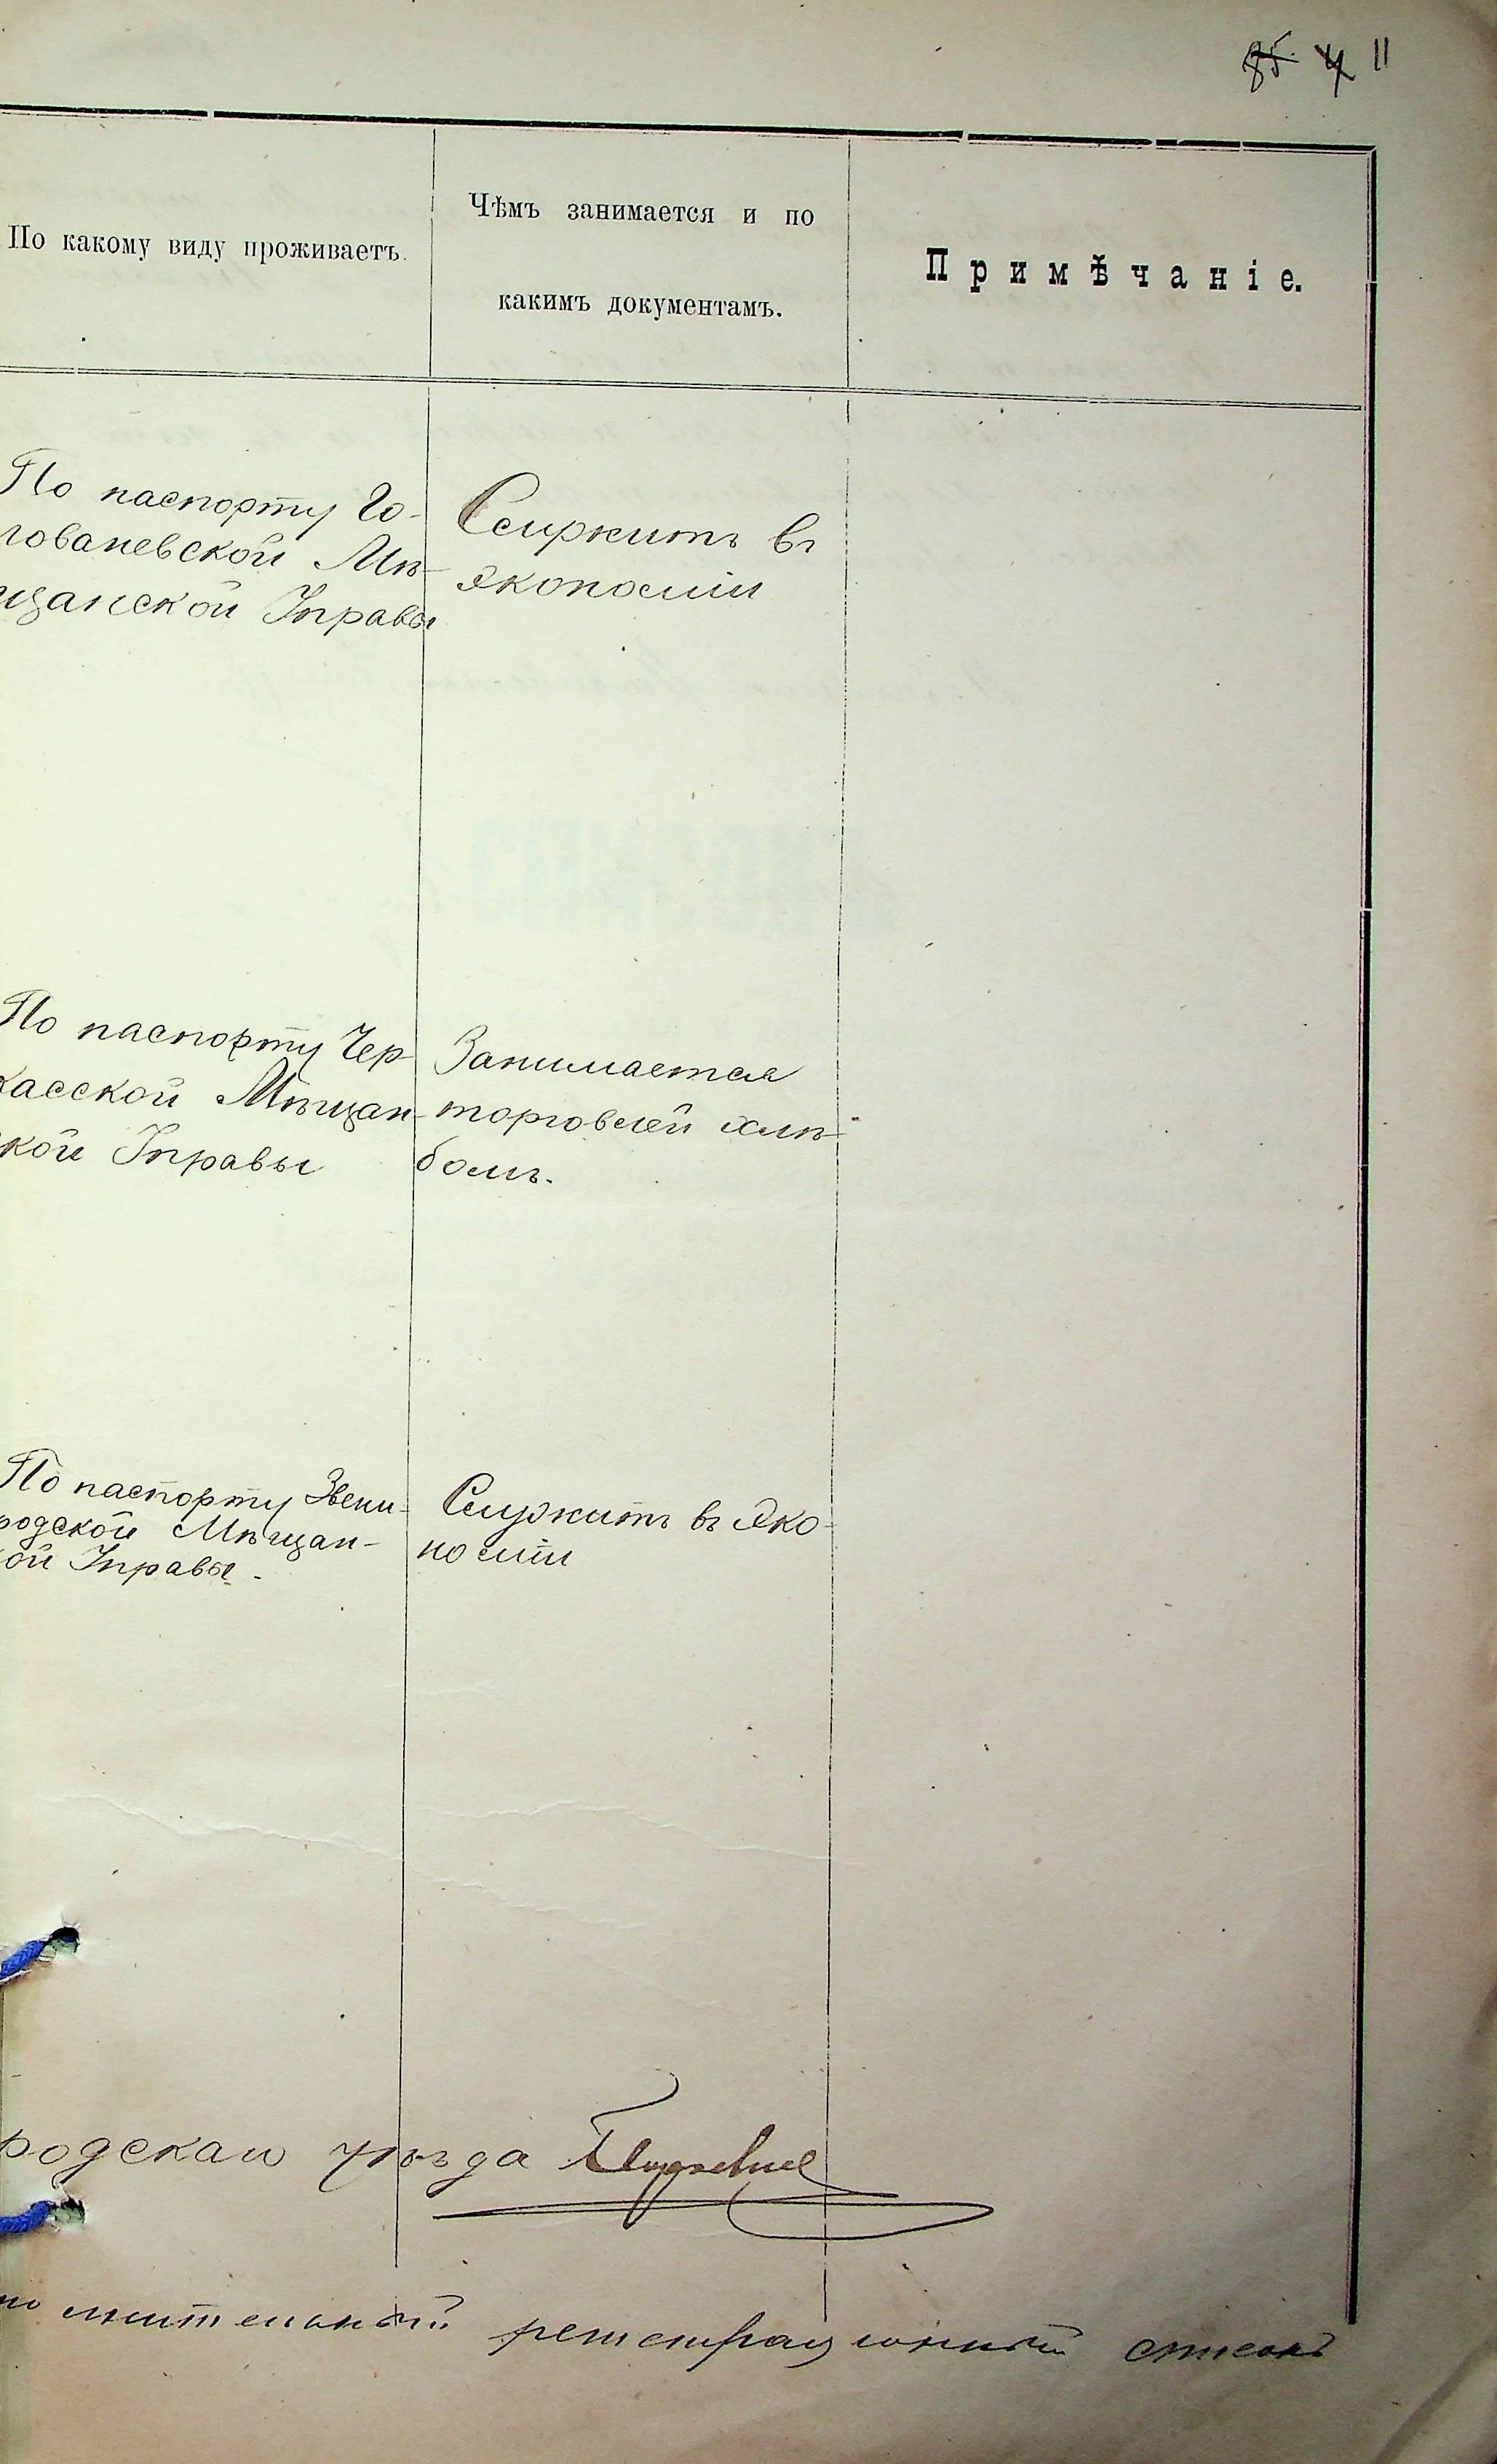 85 4 11
По какому виду проживаетъ.
Чѣмъ занимается и по
какимъ документамъ.
Примѣчаніе.
По паспорту Го-
ловановской Мѣ-
щанской Управы
Служитъ въ
экономіи
По паспорту Чер-
касской Мѣщан-
кой Управы
Занимается
торговлей хлѣ-
бомъ.
По паспорту Звени-
родской Мѣщан-
ой Управы.
Служитъ въ эко-
номіи
родскаго уѣзда
нительный регистраціонный списокъ